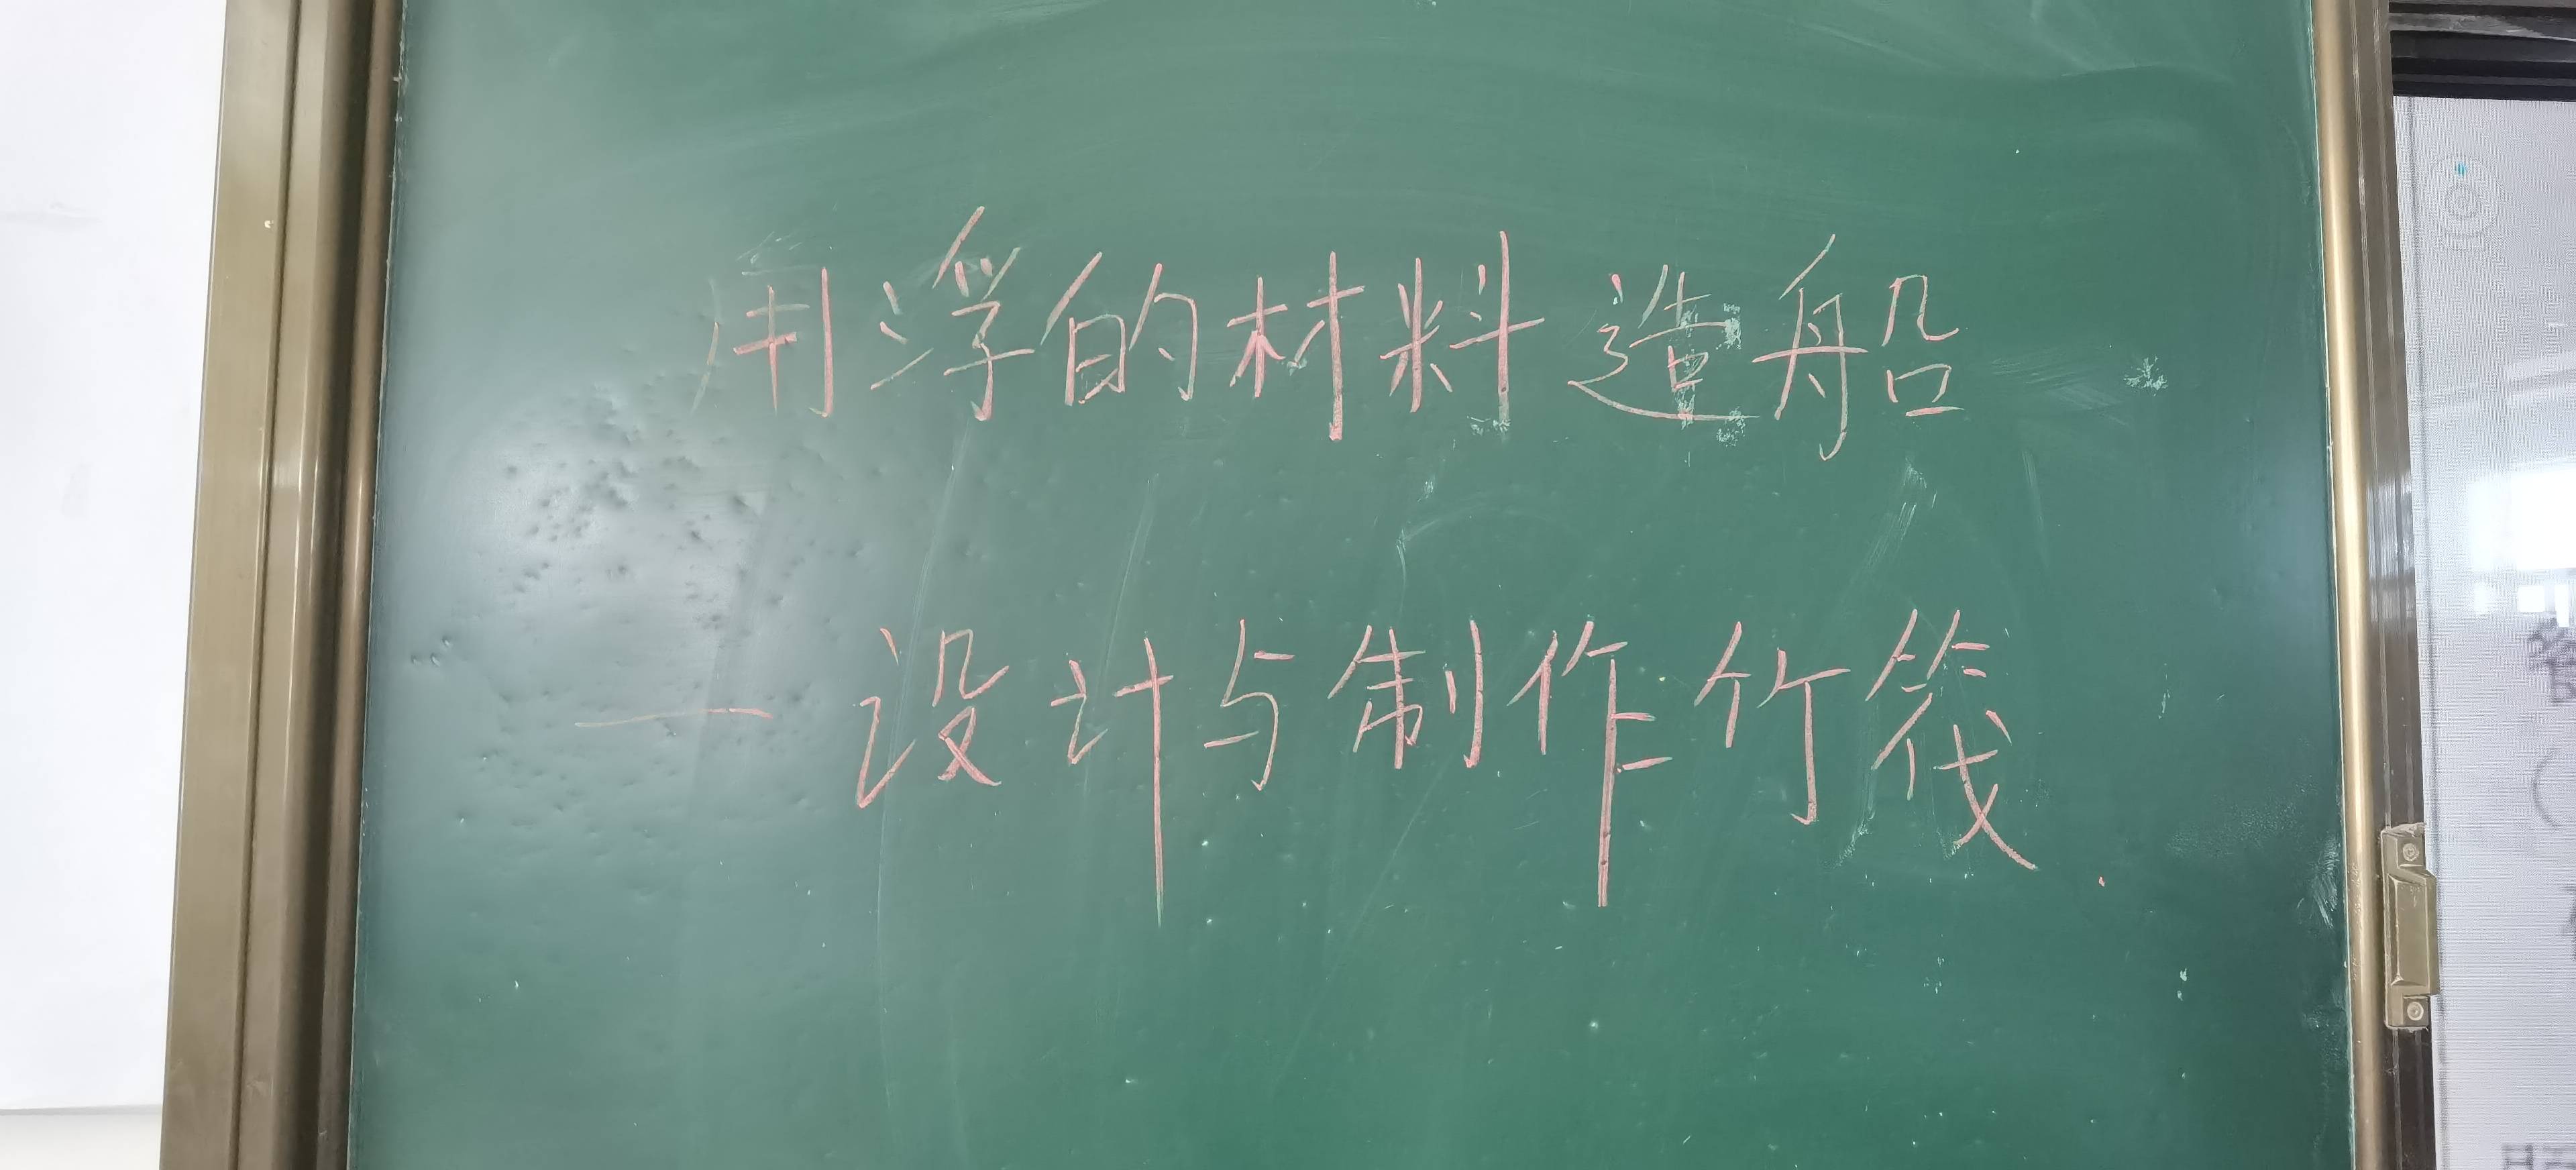 用浮的材料造船
—设计与制作竹筏